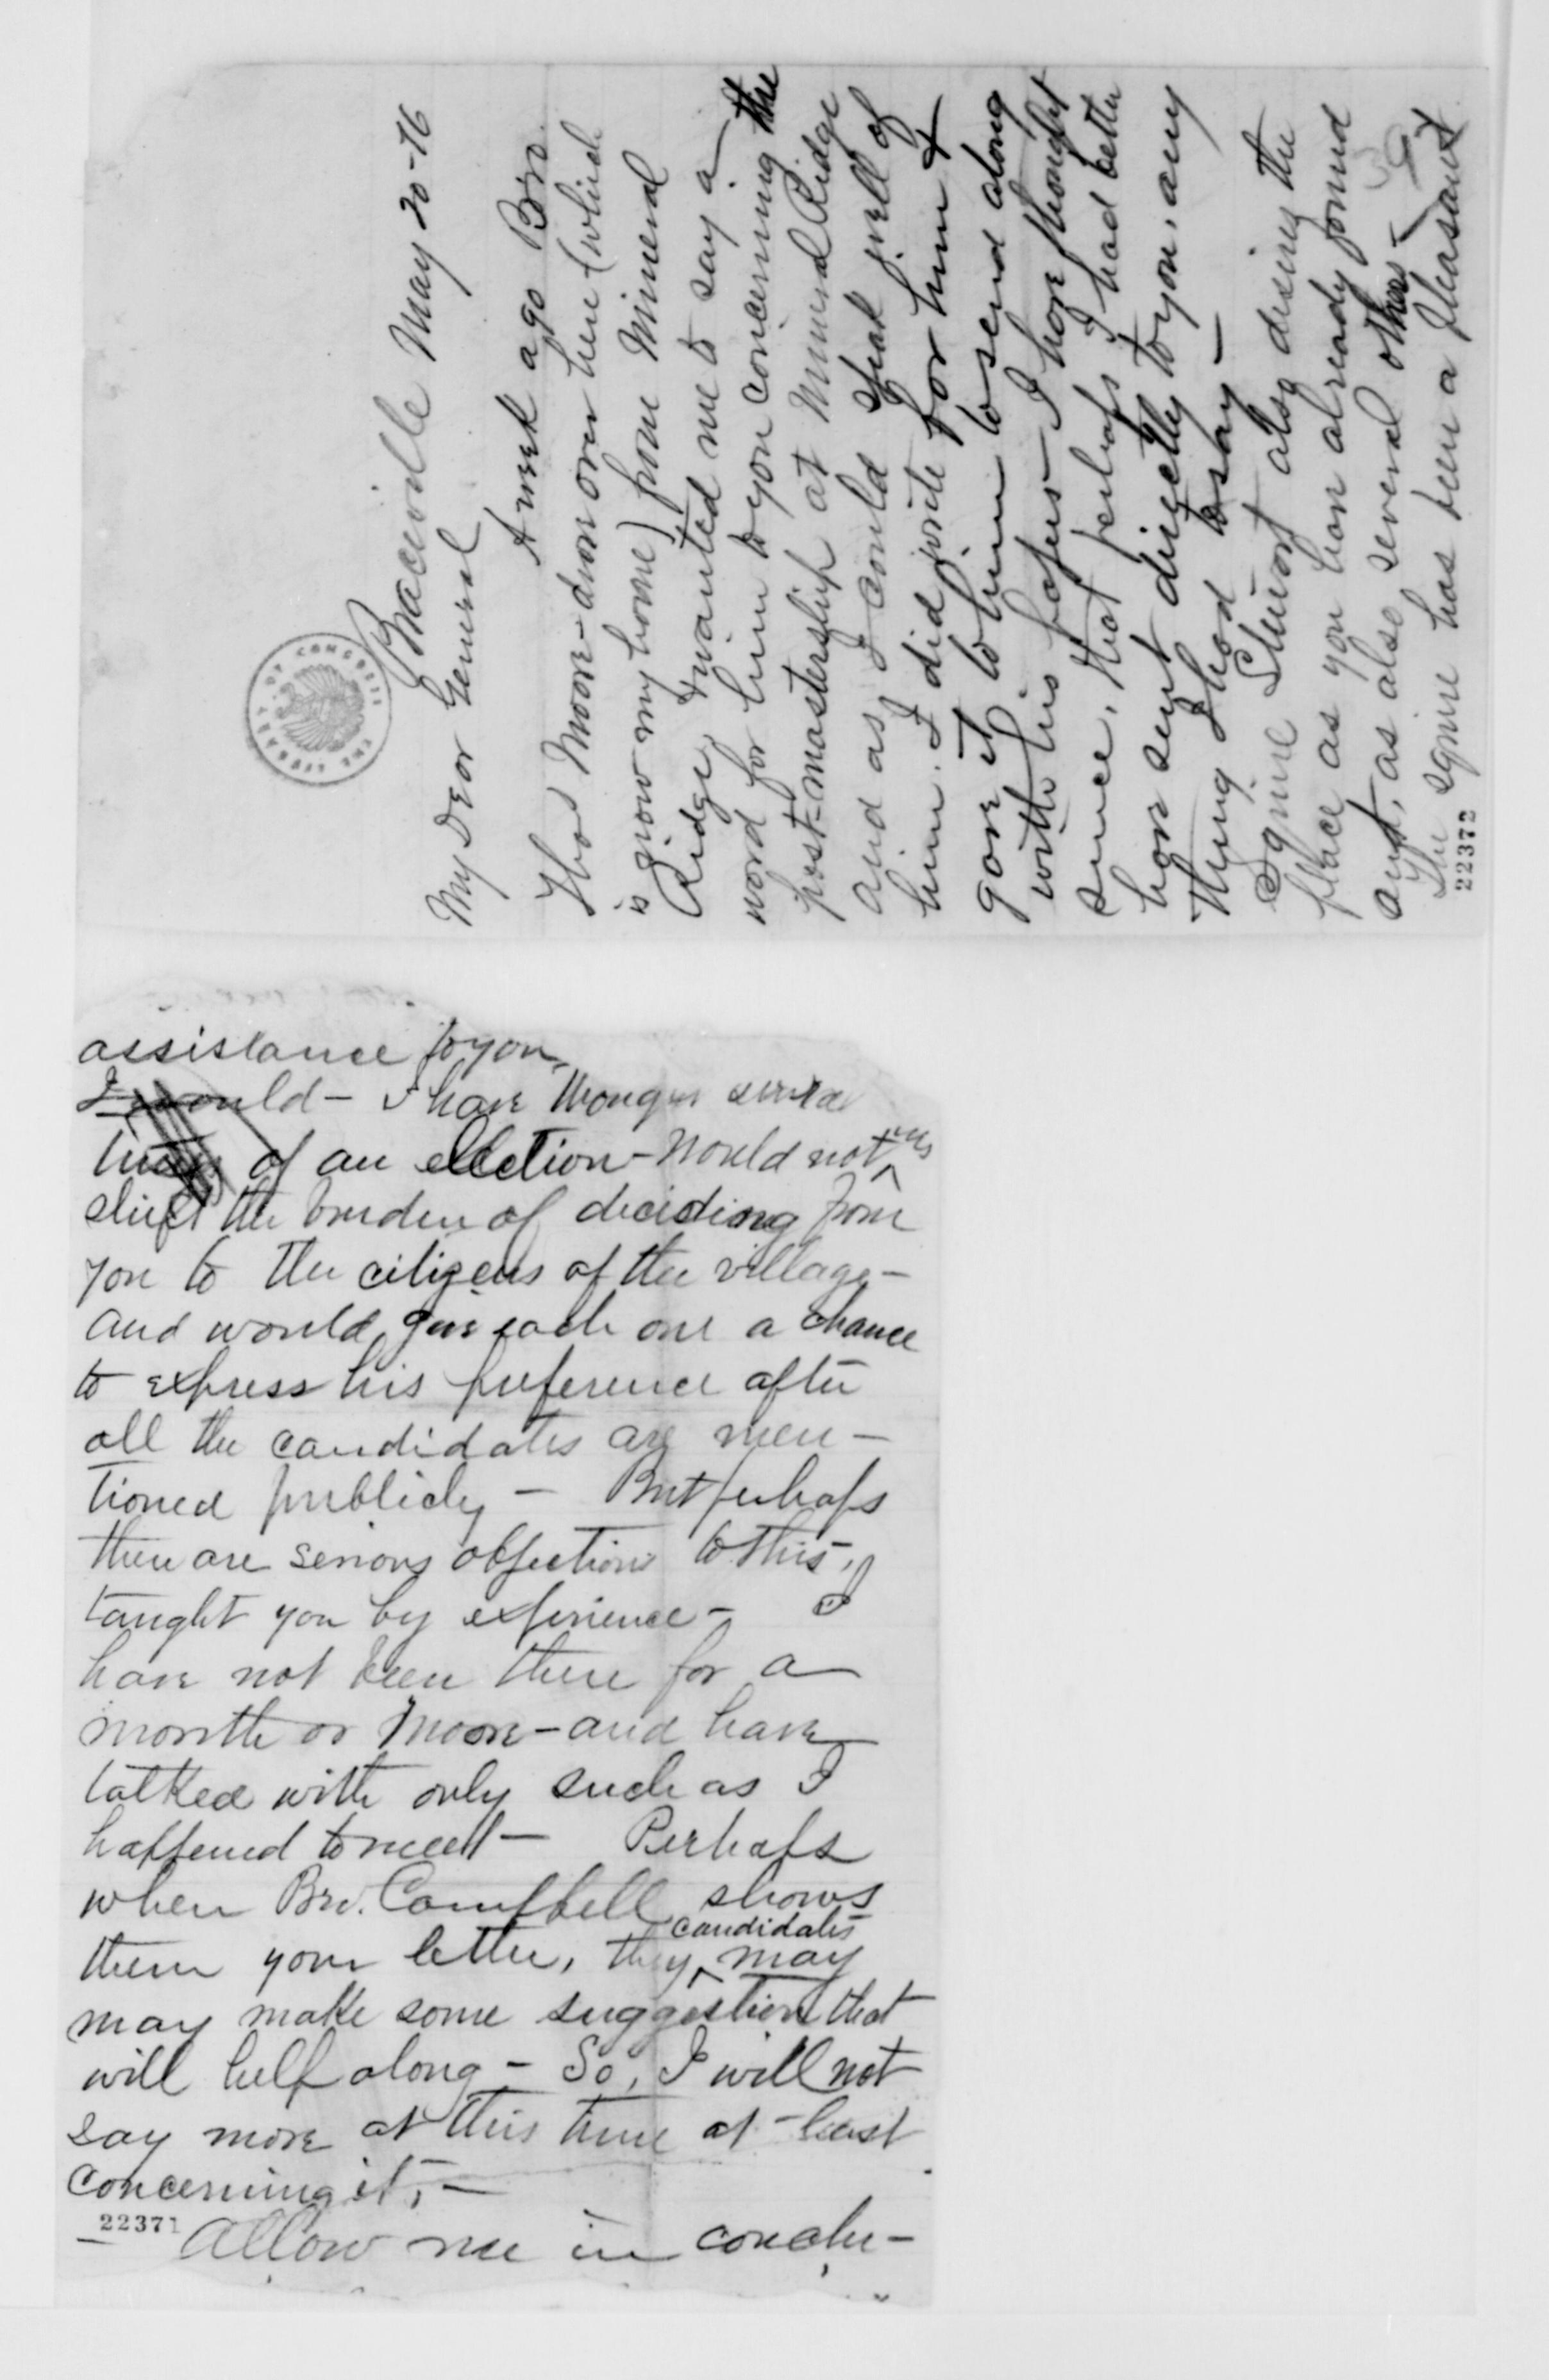 Braceville May 20-76
My Dear General
A week ago Bro.
Thos Moore - drove over here (which
is now my home) from Mineral
Ridge, & wanted me to say a
word for him to you concerning the
post-mastership at Mineral Ridge
and as I could speak well of
him. I did write for him &
gave it to him to send along
with his papers - I have thought
since, that perhaps I had better
have sent directly to you, any
thing I had to say -
Squire Stewart also desires the
place as you have already found
out, as also several others -
The squire has been a pleasant
22372
assistance to you,
I would - I have thought several
times of an election - Would not
shift the burden of deciding from
you to the citizens of the village -
and would give each one a chance
to express his preference after
all the candidates are men-
tioned publicly - But perhaps
there are serious objections to this,
taught you by experience - I
have not been there for a
month or more - and have
talked with only such as I
happened to meet - Perhaps
when Bro. Campbell shows
candidates
them your letter, they may
may make some suggestion that
will help along - So, I will not
say more at this time at least
concerning it, -
22371
Allow me in conclu-